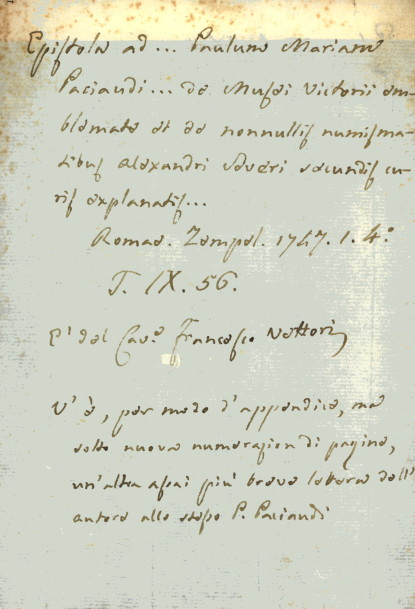 Epistola ad ... Paulum Mariam
Paciaudi ... de Musei Victorii em-
blemate et de nonnullis numisma-
tibus Alexandri Severi secundis cu-
ris explanatis...
Romae. Zempel. 1747. 1. 4.°
T. IX. 56.
E' del Cav.e Francesco Vettori
V' è, per modo d'appendice, ma
sotto nuova numerazion di pagine,
un'altra assai più breve lettera dell'
autore allo stesso P. Paciaudi